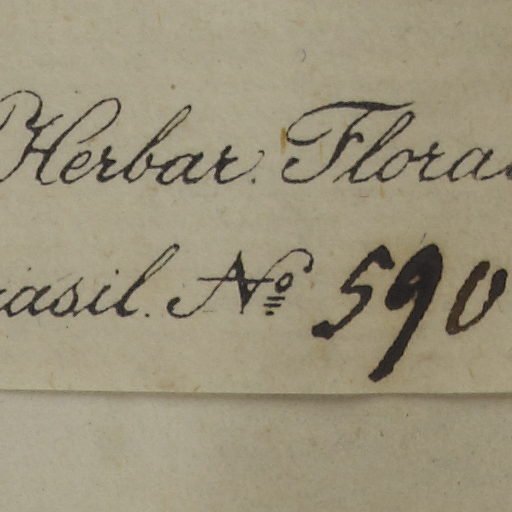 Herbar. Florae
rasil. Nº 590